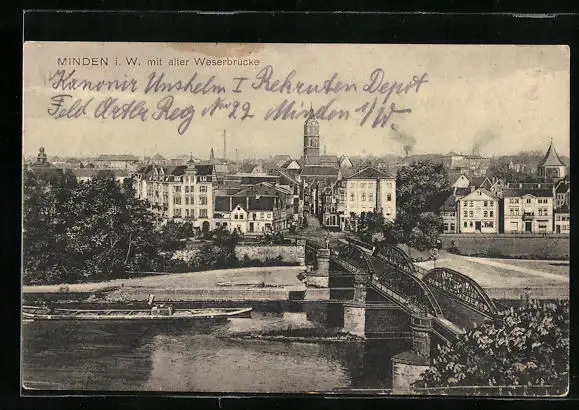 MINDEN i. W. mit alter Weserbrücke
Kanonir Unshelm I Rekruten Depot
Feld Artlr Reg No 22 Minden i/W